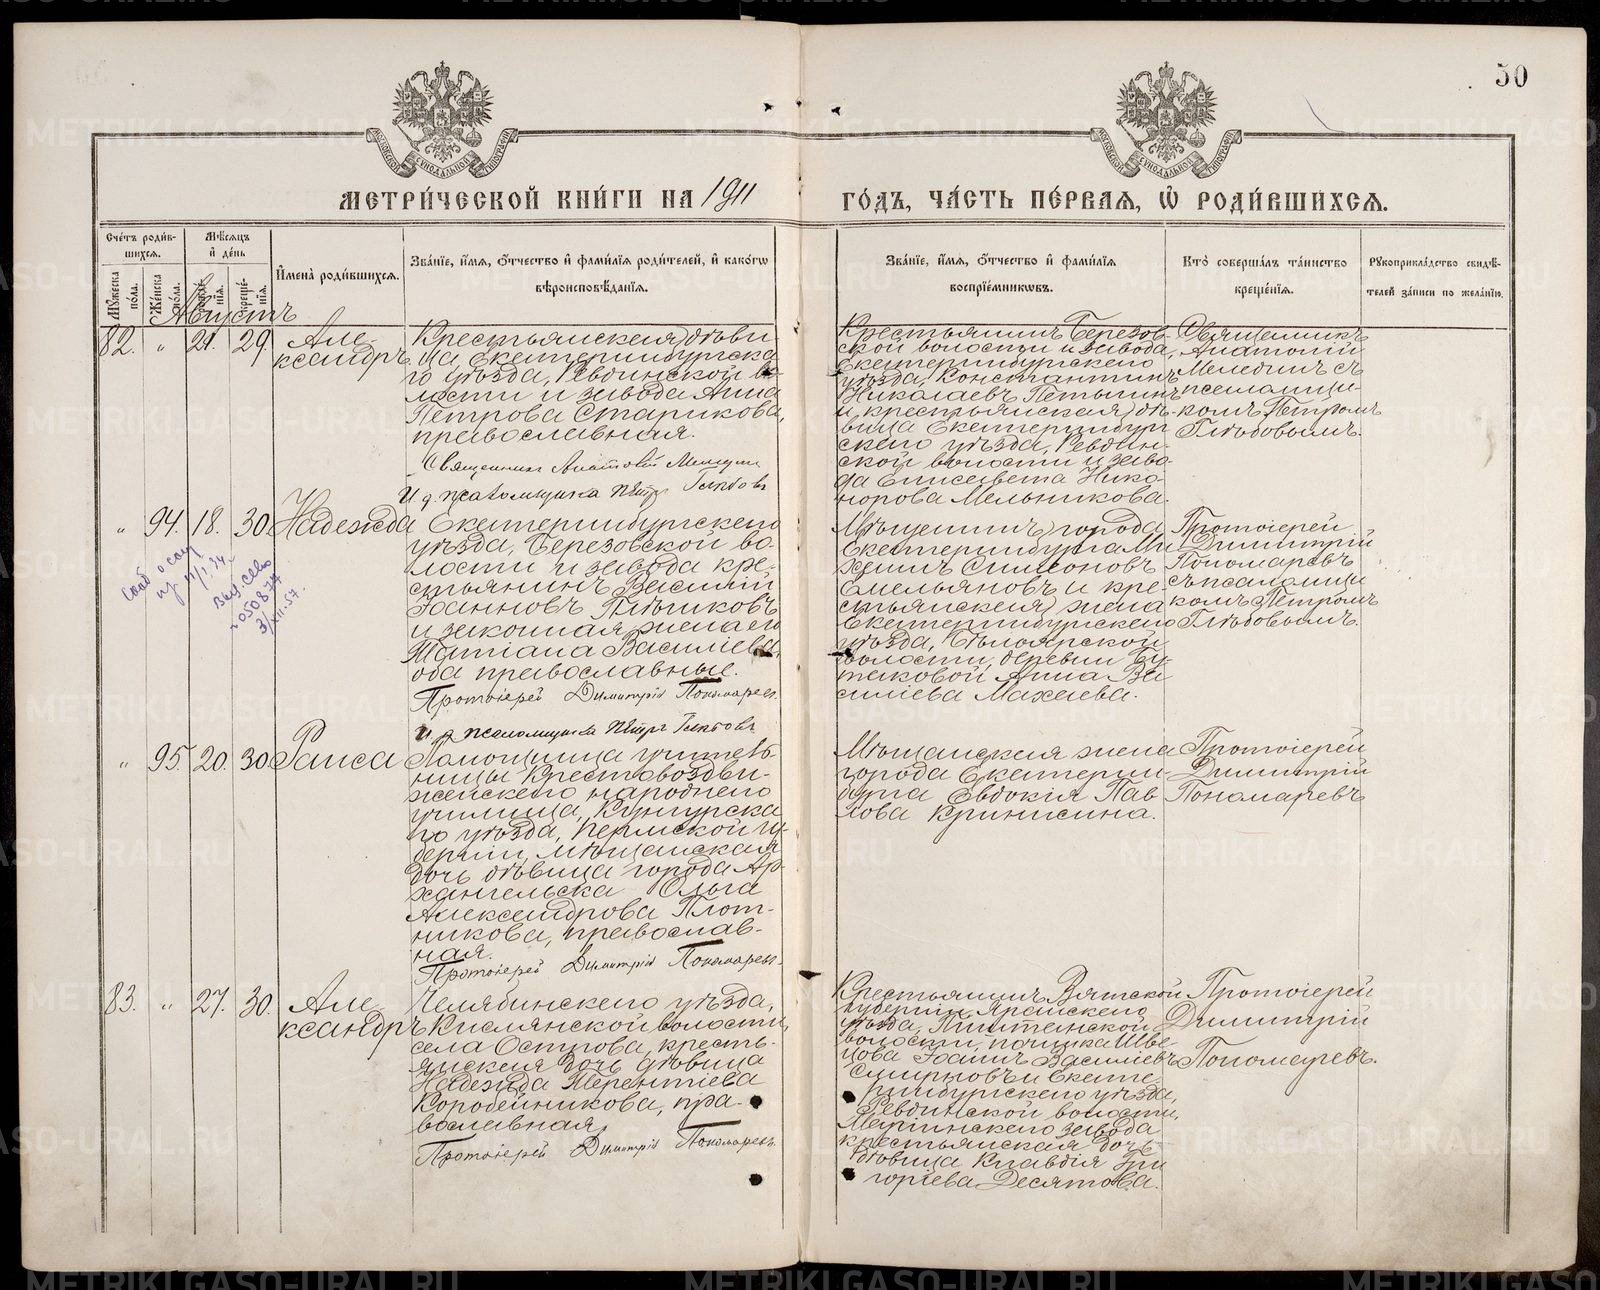 50
МЕТРИ́ЧЕСКОЙ КНИ́ГИ НА 1911
ГО́ДЪ, ЧА́СТЬ ПЕ́РВАЯ, Ѿ РОДИ́ВШИХСЯ.
Сче́тъ роди́в-
шихся.
Мѣ́сяцъ
и҆ де́нь
И҆мена̀ роди́вшихся.
Зва́нїе, и҆́мя, ѻ҆́тчество и҆ фами́лїя роди́телей, и҆ како́гѡ
вѣроисповѣ́данїя.
Зва́нїе, и҆́мя, ѻ҆́тчество и҆ фами́лїя
воспрїе́мниковъ.
Кто̀ соверша́лъ та́инство
креще́нїя.
Рукоприкла́дство свидѣ́-
телей за́писи по жела́нїю.
Мꙋ́жеска
по́ла.
Же́нска
по́ла.
креще́-
нїя.
Августъ
82. " 21. 29.
Але-
ксандръ
Крестьянская дѣви
ца Екатеринбургска
го уѣзда, Ревдинской во
лости и завода Анна
Петрова Старикова,
православная.
Священникъ Анатолій Мелединъ
И. д. псаломщика Петръ Глѣбовъ
Крестьянинъ Березов-
ской волости и завода,
Екатеринбургскаго
уѣзда, Константинъ
Николаевъ Петынинъ
и крестьянская дѣ-
вица Екатеринбург
скаго уѣзда, Ревдин-
ской волости и заво-
да Елисавета Нико-
норова Мельникова.
Священникъ
Анатолій
Мелединъ съ
псаломщи-
комъ Петромъ
Глѣбовымъ.
" 94. 18. 30.
Надежда
Екатеринбургскаго
уѣзда, Березовской во-
лости и завода кре-
стьянинъ Василій
Іоанновъ Пѣчиковъ
и законная жена его
Татіана Васильева,
оба православные.
Протоіерей Димитрій Пономаревъ.
И. д. псаломщика Петръ Глѣбовъ
Мѣщанинъ города
Екатеринбурга Ми
хаилъ Симеоновъ
Емельяновъ и кре-
стьянская жена
Екатеринбургскаго
уѣзда, Бѣлоярской
волости, деревни Бу-
таковой Анна Ва
силіева Махаева.
Протоіерей
Димитрій
Пономаревъ
съ псаломщи
комъ Петромъ
Глѣбовымъ.
" 95. 20. 30.
Раиса
Помощница учитель-
ницы Крестовоздви-
женскаго народнаго
училища, Кунгурска
го уѣзда, Пермской гу-
берніи, мѣщанская
дочь дѣвица города Ар-
хангельска Ольга
Александрова Плот-
никова, православ-
ная.
Протоіерей Димитрій Пономаревъ.
Мѣщанская жена
города Екатерин-
бурга Евдокія Пав
лова Кринисина.
Протоіерей
Димитрій
Пономаревъ
83. " 27. 30.
Але-
ксандръ
Челябинскаго уѣзда,
Кислянской волости,
села Острова, кресть-
янская дочь дѣвица
Надежда Терентіева
Коробейникова, пра-
вославная.
Протоіерей Димитрій Пономаревъ.
Крестьянинъ Вятской
губерніи Яранскаго
уѣзда, Пиштанской
волости, починка Шве
цова Іоаннъ Василіевъ
Смирновъ и Екате-
ринбургскаго уѣзда,
Ревдинской волости,
Маріинскаго завода
крестьянская дочь
дѣвица Клавдія Гри
горіева Десятова.
Протоіерей
Димитрій
Пономаревъ.
METRIKI.GASO-URAL.RU